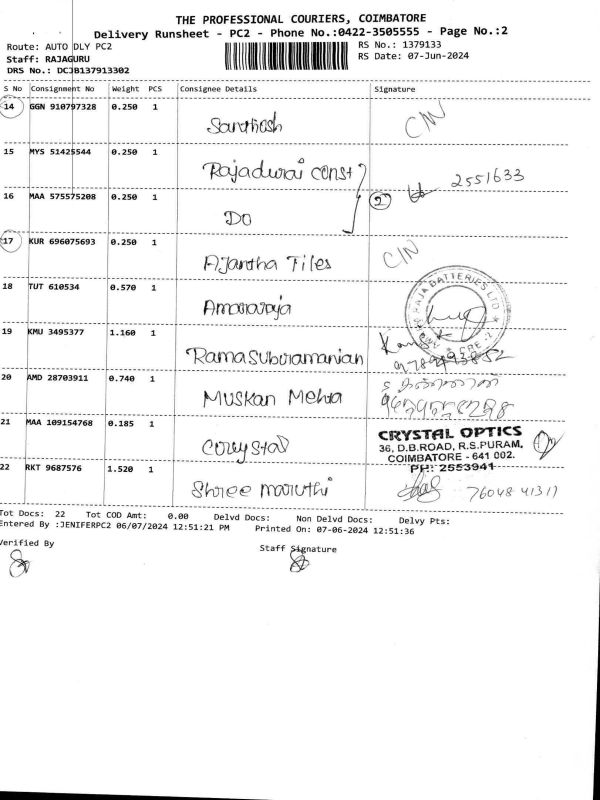 THE PROFESSIONAL COURIERS, COIMBATORE
Delivery Runsheet - PC2 - Phone No.:0422-3505555 - Page No.:2
Route: AUTO DLY PC2
RS No.: 1379133
Staff: RAJAGURU
RS Date: 07-Jun-2024
DRS No.: DCJB137913302
S No Consignment No Weight PCS Consignee Details Signature
14 GGN 910797328 0.250 1 Santhosh C/N
15 MYS 51425544 0.250 1 Rajadurai const 2551633
16 MAA 575575208 0.250 1 DO 2
17 KUR 696075693 0.250 1 Ajantha Tiles C/N
18 TUT 610534 0.570 1 Amararaja
19 KMU 3495377 1.160 1 Ramasubramanian
20 AMD 28703911 0.740 1 Muskan Mehta
21 MAA 109154768 0.185 1 Crystal
CRYSTAL OPTICS
36, D.B.ROAD, R.S.PURAM,
COIMBATORE - 641 002.
PH: 2553941
22 RKT 9687576 1.520 1 Shree maruthi 76048 41311
Tot Docs: 22 Tot COD Amt: 0.00 Delvd Docs: Non Delvd Docs: Delvy Pts:
Entered By :JENIFERPC2 06/07/2024 12:51:21 PM Printed On: 07-06-2024 12:51:36
Verified By
Staff Signature